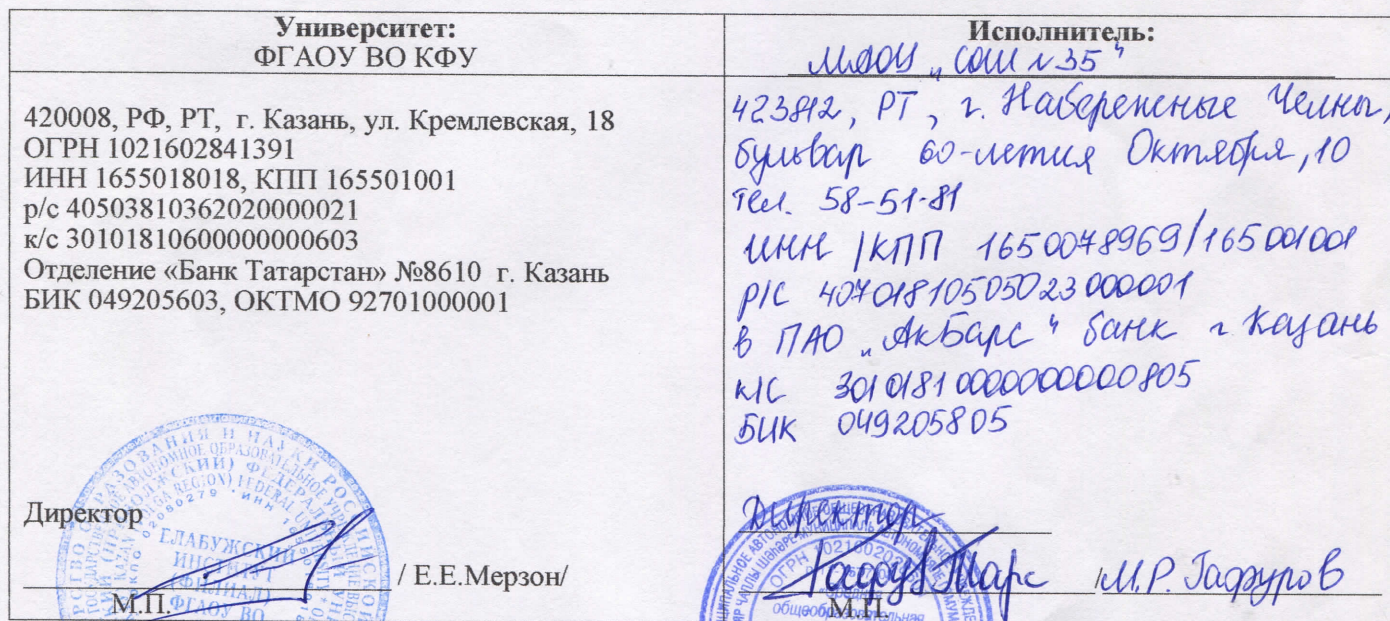 Университет:
ФГАОУ ВО КФУ
420008, РФ, РТ, г. Казань, ул. Кремлевская, 18
ОГРН 1021602841391
ИНН 1655018018, КПП 165501001
р/с 40503810362020000021
к/с 30101810600000000603
Отделение «Банк Татарстан» №8610 г. Казань
БИК 049205603, ОКТМО 92701000001
Директор
/ Е.Е.Мерзон/
М.П.
ЕЛАБУЖСКИЙ
ИНСТИТУТ
(ФИЛИАЛ)
ФГАОУ ВО
Исполнитель:
МАОУ „СОШ №35"
423812, РТ, г. Набережные Челны,
бульвар 60-летия Октября, 10
тел. 58-51-81
ИНН/КПП 1650078969/165001001
р/с 40701810505023000001
в ПАО „АкБарс" банк г Казань
к/с 30101810000000000805
БИК 049205805
Директор
/М.Р. Гафуров
М.П.
общеобразовательная